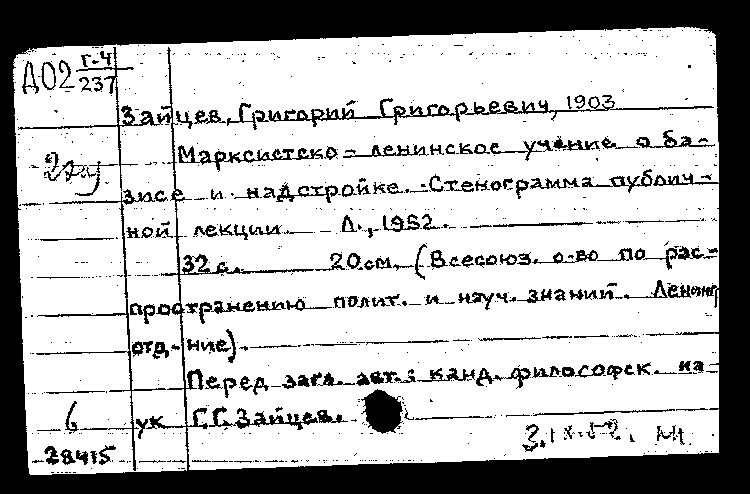 Д02 Г-4
237
Зайцев, Григорий Григорьевич, 1903
Марксистско-ленинское учение о ба-
зисе и надстройке. Стенограмма публич-
ной лекции. Л., 1952.
32 с. 20 см. (Всесоюз. о-во по рас-
пространению полит. и науч. знаний. Ленингр
отд-ние).
Перед загл. авт.: канд. философск. на-
6 ук Г.Г. Зайцев.
28415 3.IX.52.